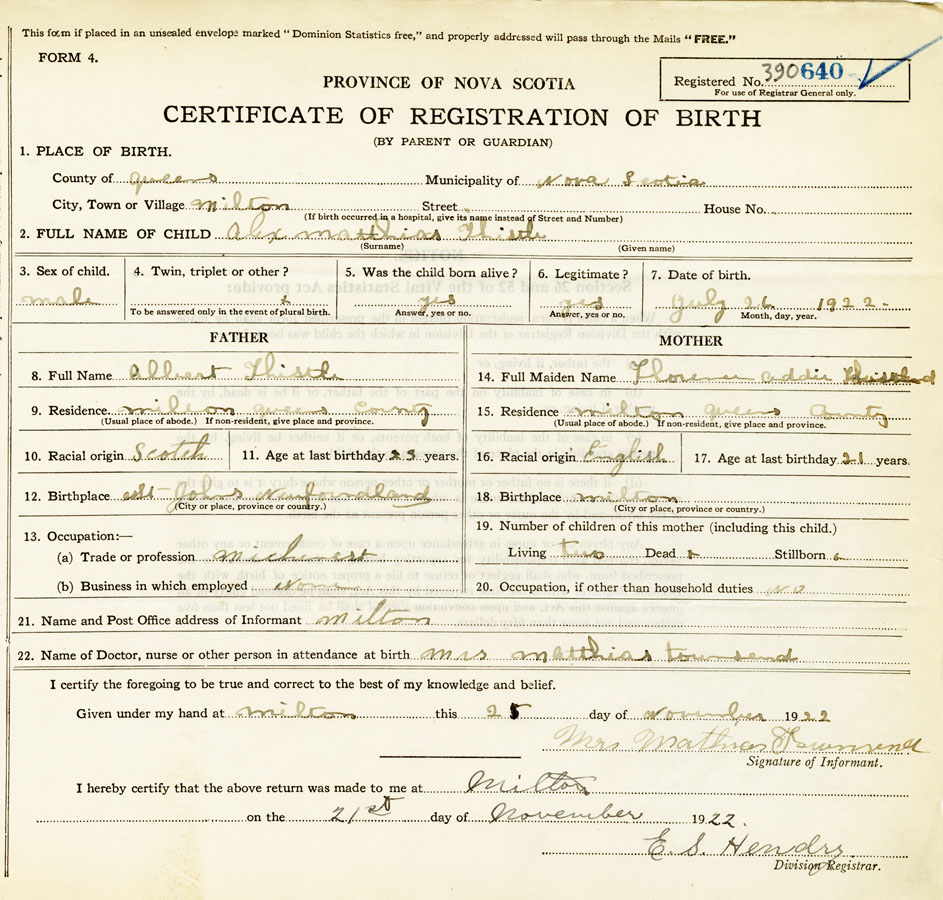 This form if placed in an unsealed envelope marked "Dominion Statistics free," and properly addressed will pass through the Mails "FREE."
FORM 4.
Registered No. 390640
For use of Registrar General only.
PROVINCE OF NOVA SCOTIA
CERTIFICATE OF REGISTRATION OF BIRTH
(BY PARENT OR GUARDIAN)
1. PLACE OF BIRTH.
County of Queens Municipality of Nova Scotia
City, Town or Village Milton Street House No.
(If birth occurred in a hospital, give its name instead of Street and Number)
2. FULL NAME OF CHILD Alex Matthias Thistle
(Surname) (Given name)
3. Sex of child. 4. Twin, triplet or other? 5. Was the child born alive? 6. Legitimate? 7. Date of birth.
male yes yes July 26 1922
To be answered only in the event of plural birth. Answer, yes or no. Answer, yes or no. Month, day, year.
FATHER MOTHER
8. Full Name Albert Thistle 14. Full Maiden Name Florence Addie
9. Residence. Milton Queens County 15. Residence Milton Queens County
(Usual place of abode.) If non-resident, give place and province. (Usual place of abode.) If non-resident, give place and province.
10. Racial origin Scotch 11. Age at last birthday 23 years. 16. Racial origin English 17. Age at last birthday 21 years.
12. Birthplace St Johns Newfoundland 18. Birthplace Milton
(City or place, province or country.) (City or place, province or country.)
13. Occupation:— 19. Number of children of this mother (including this child.)
(a) Trade or profession Michinest Living two Dead Stillborn
(b) Business in which employed None 20. Occupation, if other than household duties NO
21. Name and Post Office address of Informant Milton
22. Name of Doctor, nurse or other person in attendance at birth Mrs Matthias Townsend
I certify the foregoing to be true and correct to the best of my knowledge and belief.
Given under my hand at Milton this 25 day of November 1922
Mrs Mathias Townsend
Signature of Informant.
I hereby certify that the above return was made to me at Milton
on the 21st day of November 1922.
E. S. Hendry
Division Registrar.